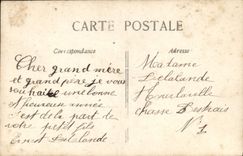 CARTE POSTALE
Correspondance
Adresse
Cher grand mère
et grand père je vous
souhaite une bonne
et heureux année
c'est de la part de
votre petit fils
Ernst Delalande
Madame
Delalande
à Tourlaville
chasse
N° 1